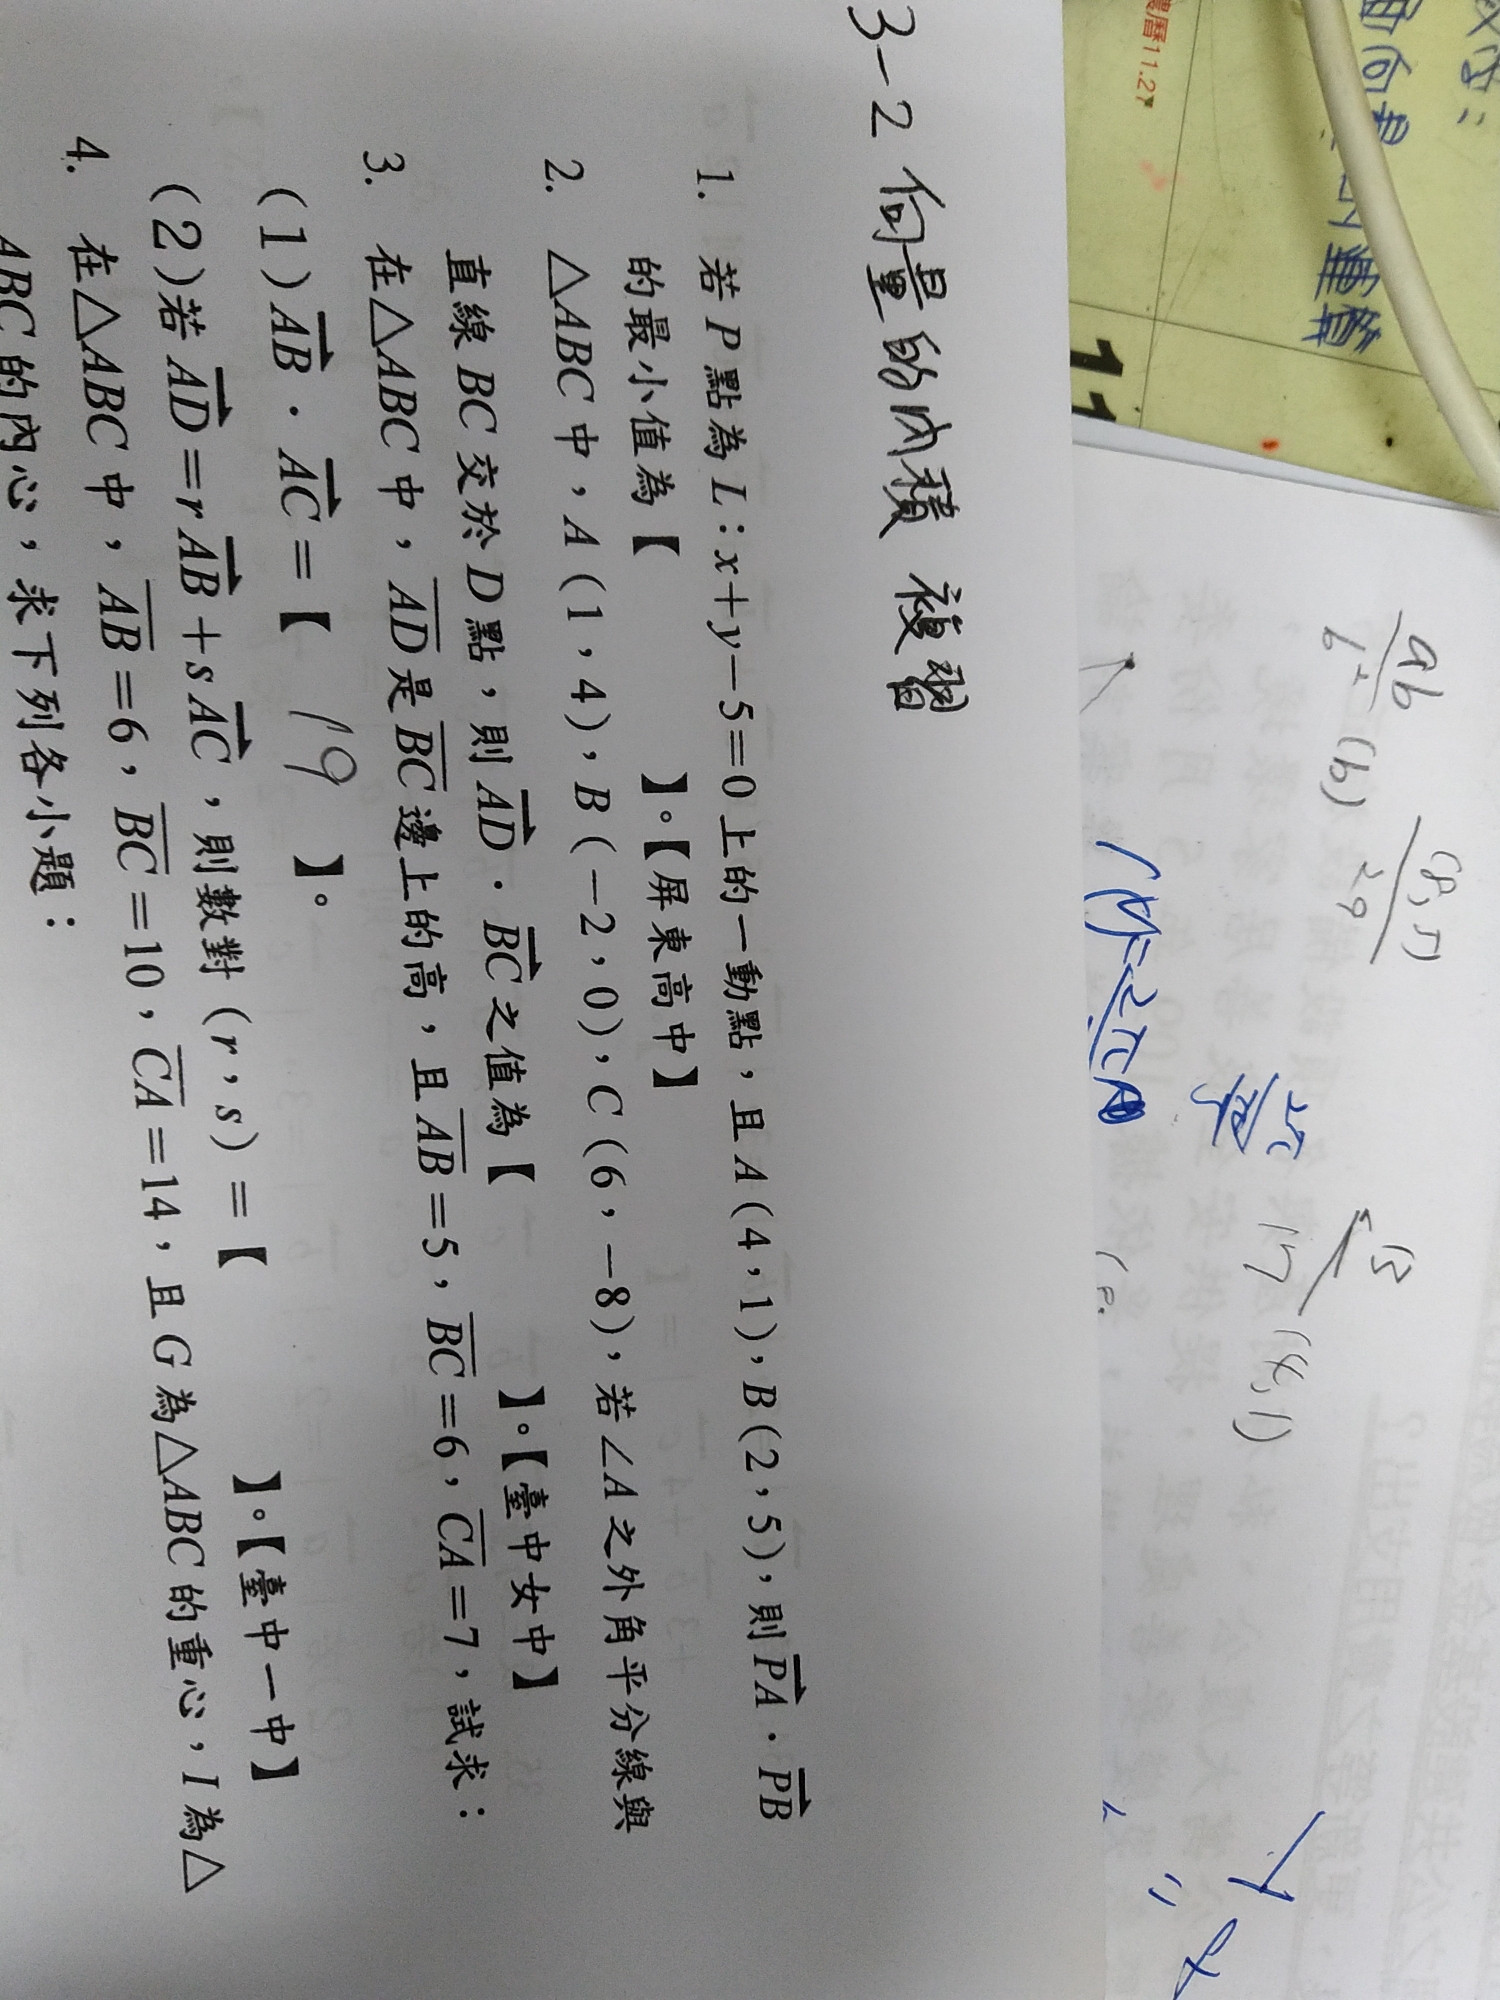 3-2 向量的內積 複習
1. 若P點為L:x+y-5=0上的一動點，且A(4,1)，B(2,5)，則PA·PB
的最小值為【 】。【屏東高中】
2. △ABC中，A(1,4)，B(-2,0)，C(6,-8)，若∠A之外角平分線與
直線BC交於D點，則AD·BC之值為【 】。【臺中女中】
3. 在△ABC中，AD是BC邊上的高，且AB=5，BC=6，CA=7，試求：
(1)AB·AC=【 19 】。
(2)若AD=rAB+sAC，則數對(r,s)=【 】。【臺中一中】
4. 在△ABC中，AB=6，BC=10，CA=14，且G為△ABC的重心，I為△
ABC的內心，求下列各小題：
農曆11.27
11
ab
(b)
29
17
(4,1)